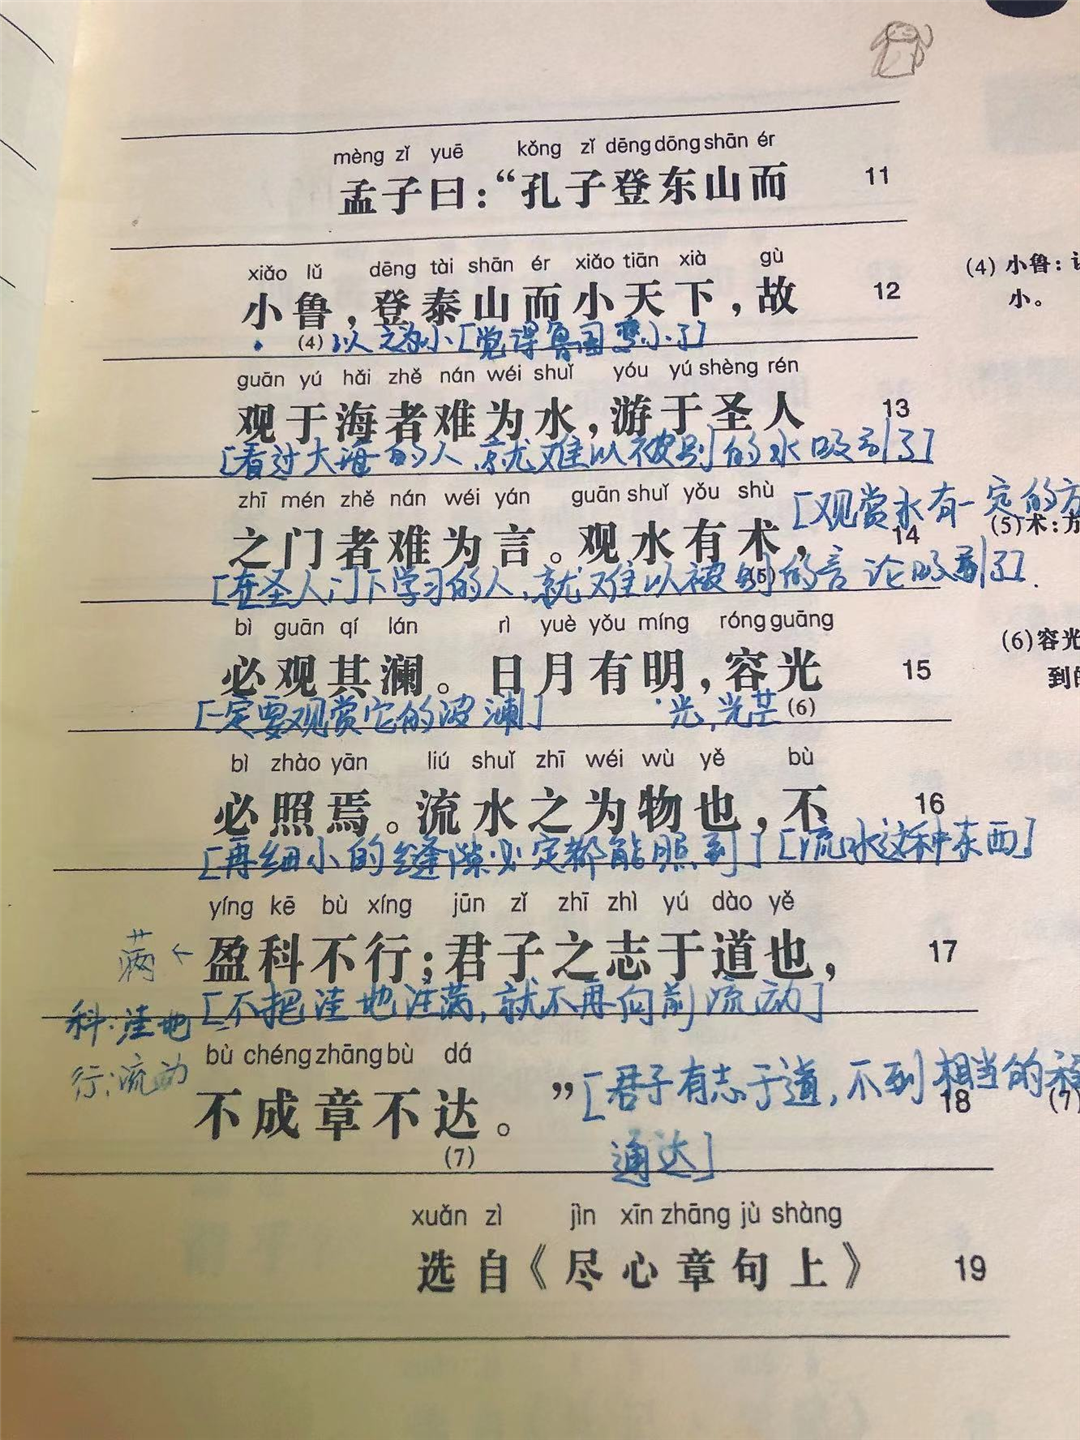 mèng zǐ yuē kǒng zǐ dēng dōng shān ér
孟子曰：“孔子登东山而 11
xiǎo lǔ dēng tài shān ér xiǎo tiān xià gù
小鲁，登泰山而小天下，故 12
(4) 小鲁：
小。
(4) 以之为小[觉得鲁国变小了]
guān yú hǎi zhě nán wéi shuǐ yóu yú shèng rén
观于海者难为水，游于圣人 13
[看过大海的人，就难以被别的水吸引了]
zhī mén zhě nán wéi yán guān shuǐ yǒu shù
[观赏水有一定的方
之门者难为言。观水有术， 14
(5)术：方
[在圣人门下学习的人，就难以被别的言论吸引了]
(5)
bì guān qí lán rì yuè yǒu míng róng guāng
必观其澜。日月有明，容光 15
(6)容光
到的
[一定要观赏它的波澜] 光，光芒 (6)
bì zhào yān liú shuǐ zhī wéi wù yě bù
必照焉。流水之为物也，不 16
[再细小的缝隙必定都能照到] [流水这种东西]
yíng kē bù xíng jūn zǐ zhī zhì yú dào yě
满←
盈科不行；君子之志于道也， 17
科：洼地
[不把洼地注满，就不再向前流动]
行：流动
bù chéng zhāng bù dá
不成章不达。” 18
[君子有志于道，不到相当的程
(7)
(7)
通达]
xuǎn zì jìn xīn zhāng jù shàng
选自《尽心章句上》 19